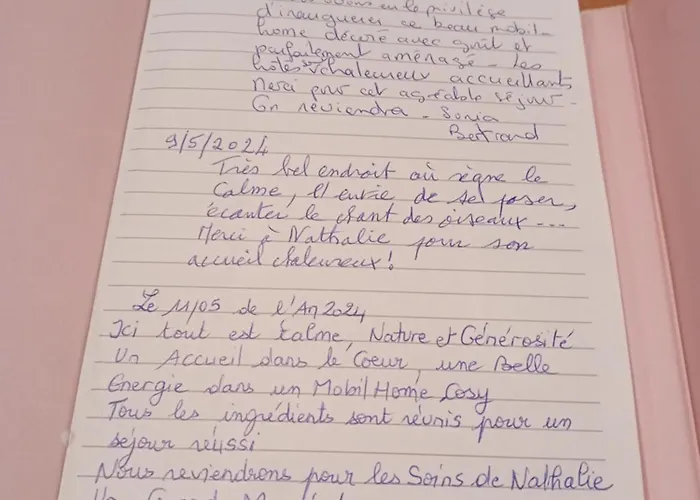 avons eu le privilège
d'inaugurer ce beau mobil-
home décoré avec goût et
parfaitement aménagé - les
hôtes st chaleureux accueillants
Merci pour cet agréable séjour -
On reviendra - Sonia
Bertrand
9/5/2024
Très bel endroit où règne le
calme, l'envie de se poser,
écouter le chant des oiseaux ---
Merci à Nathalie pour son
accueil chaleureux!
Le 11/05 de l'An 2024
Ici tout est Calme, Nature et Générosité
Un Accueil dans le Coeur, une Belle
Energie dans un Mobil Home Cosy
Tous les ingrédients sont réunis pour un
séjour réussi
Nous reviendrons pour les Soins de Nathalie
Un Grand